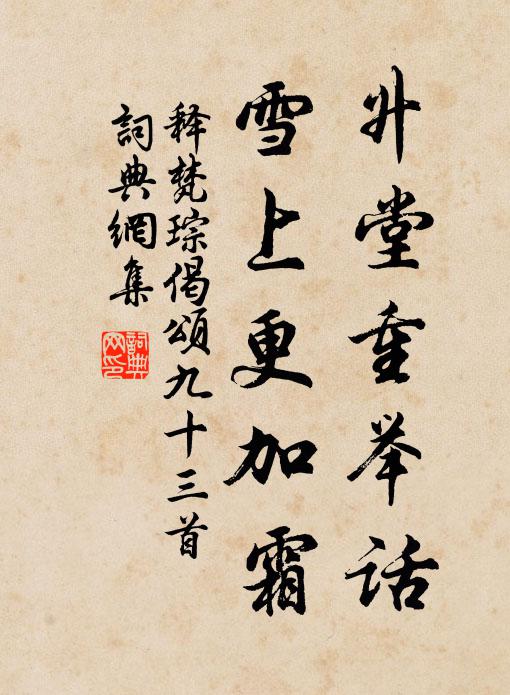 升堂重举话
雪上更加霜
释梵琮偈頌九十三首
詞典網集
詞典網印